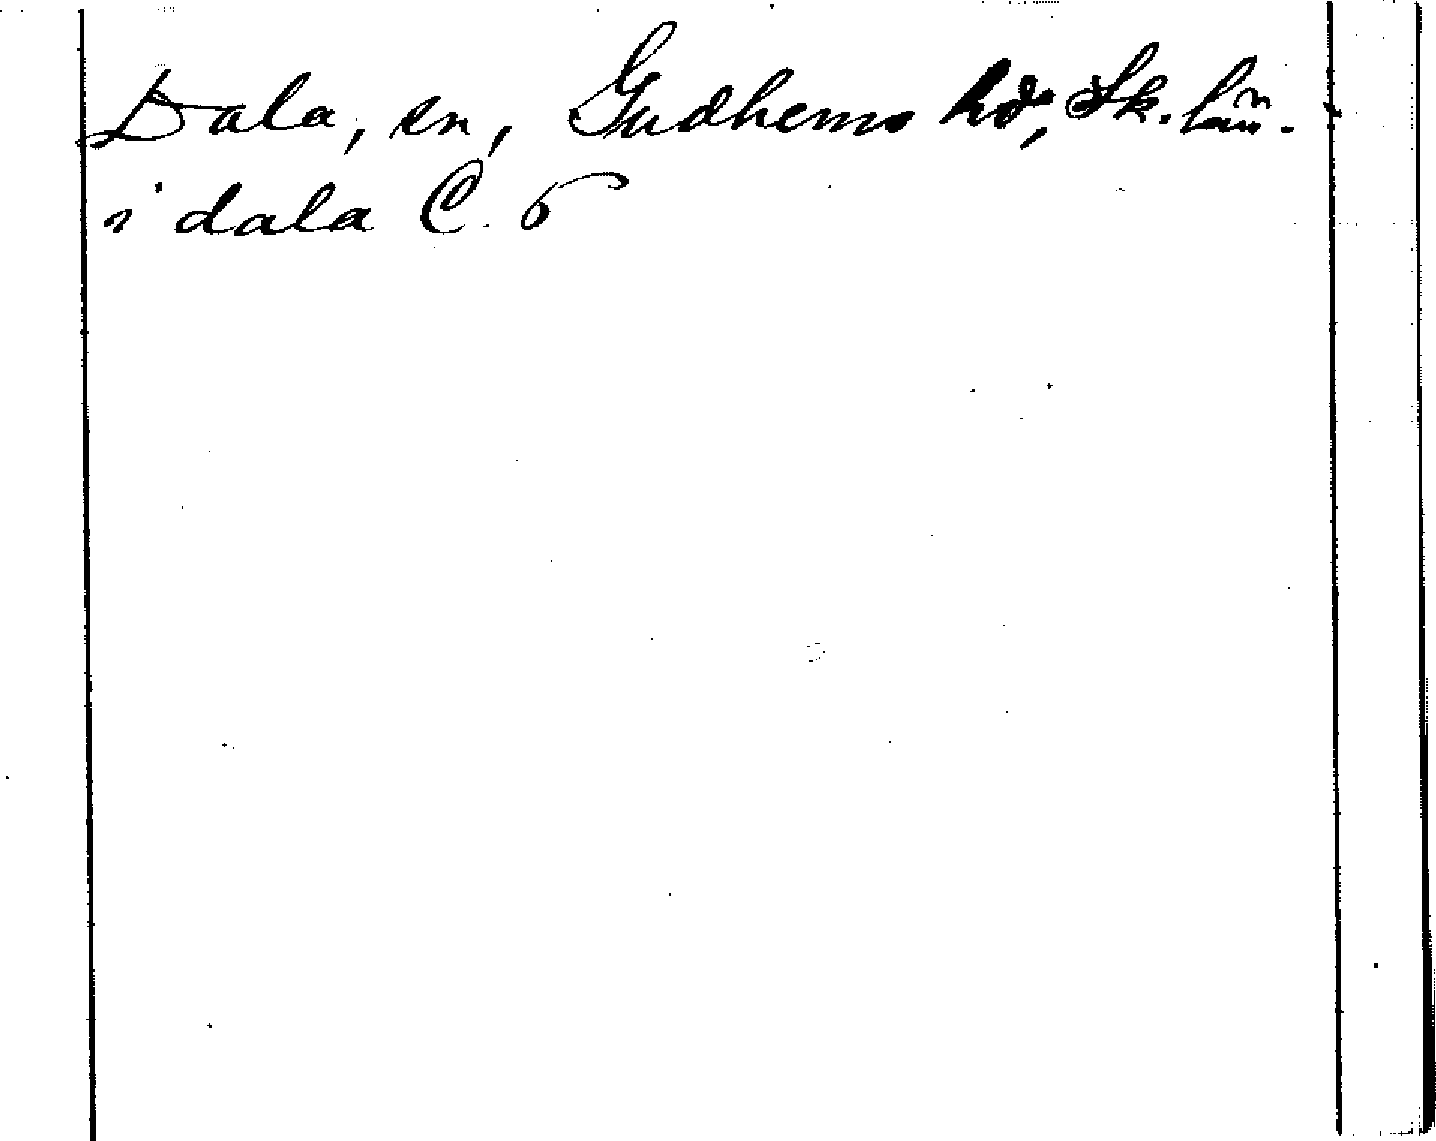 Dala, sn, Gudhems hd, Sk. län.
i dala C. 6